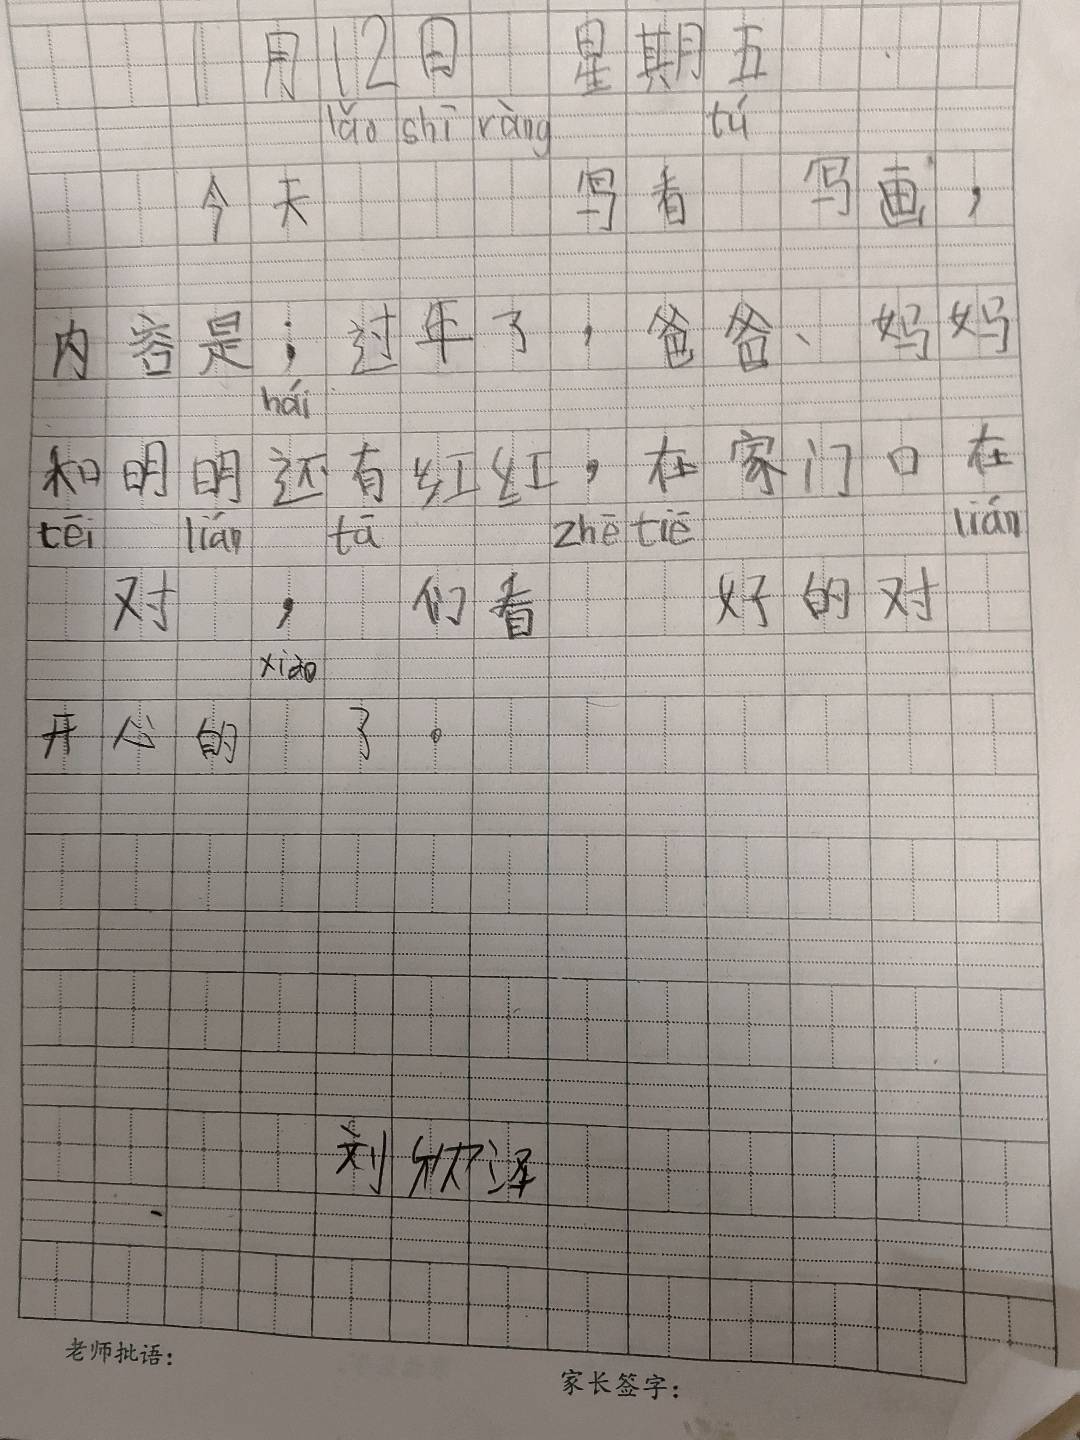 1月12日 星期五
lǎo shī ràng tú
今天 写看 写画，
内容是；过年了，爸爸、妈妈
hái
和明明还有红红，在家门口在
tēi lián tā zhē tiē lián
对 ， 们看 好的对
xiao
开心的 了。
刘欣泽
老师批语：
家长签字：